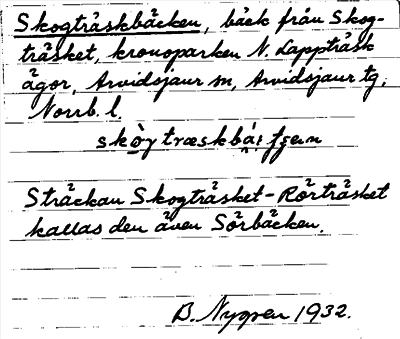 Skogträskbäcken, bäck från Skog-
träsket, kronoparken N. Lappträsk
ägor, Arvidsjaur sn, Arvidsjaur tg,
Norrb. l.
Sträckan Skogträsket-Rörträsket
kallas den även Sörbäcken.
B. Nygren 1932.